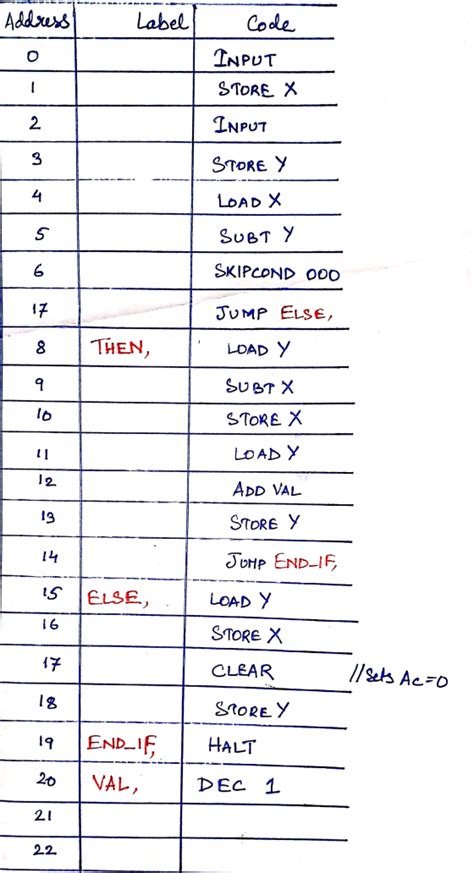 Address Label Code
0 INPUT
1 STORE X
2 INPUT
3 STORE Y
4 LOAD X
5 SUBT Y
6 SKIPCOND 000
17 JUMP ELSE,
8 THEN, LOAD Y
9 SUBT X
10 STORE X
11 LOAD Y
12 ADD VAL
13 STORE Y
14 JUMP END_IF,
15 ELSE, LOAD Y
16 STORE X
17 CLEAR //Sets AC=0
18 STORE Y
19 END_IF, HALT
20 VAL, DEC 1
21
22